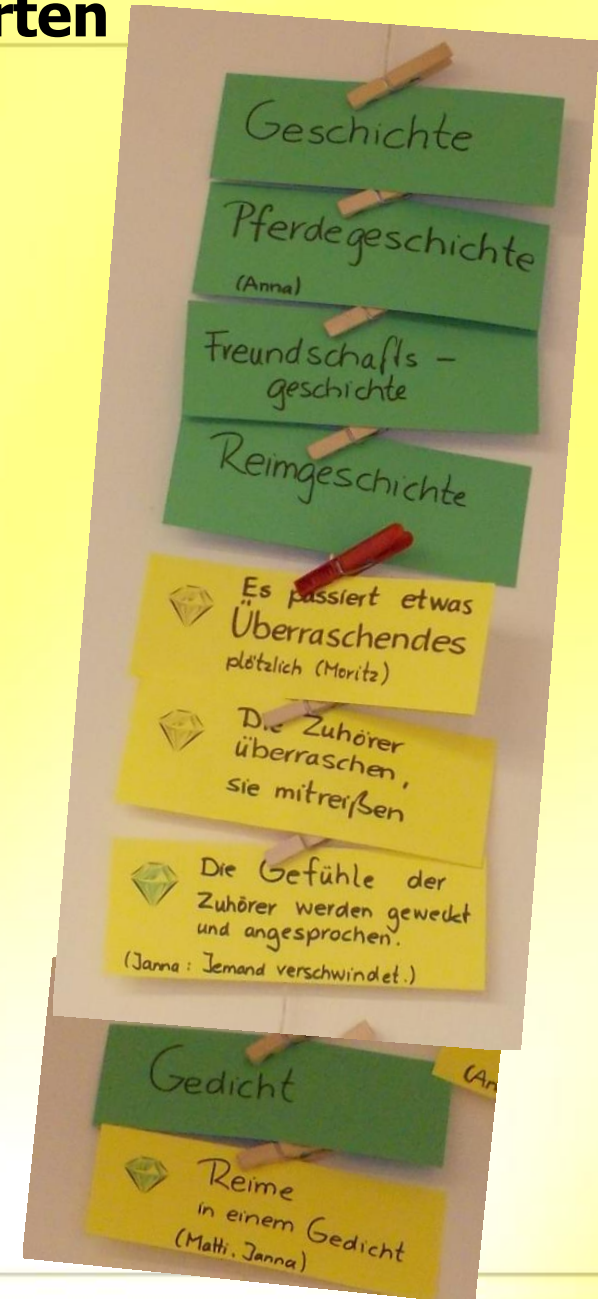 rten
Geschichte
Pferdegeschichte
(Anna)
Freundschafts –
geschichte
Reimgeschichte
Es passiert etwas
Überraschendes
plötzlich (Moritz)
Die Zuhörer
überraschen,
sie mitreißen
Die Gefühle der
Zuhörer werden geweckt
und angesprochen.
(Janna: Jemand verschwindet.)
Gedicht
(An
Reime
in einem Gedicht
(Matti, Janna)